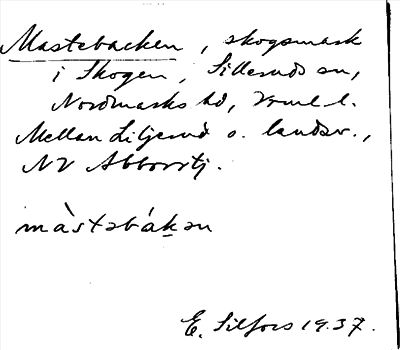 Mastebacken, skogsmark
i Skogen, Silleruds sn,
Nordmarks hd, Vrml l.
Mellan Liljerud o. landsv.,
NV Abborrtj.
màstəbák̠ən
E. Silfors 1937.